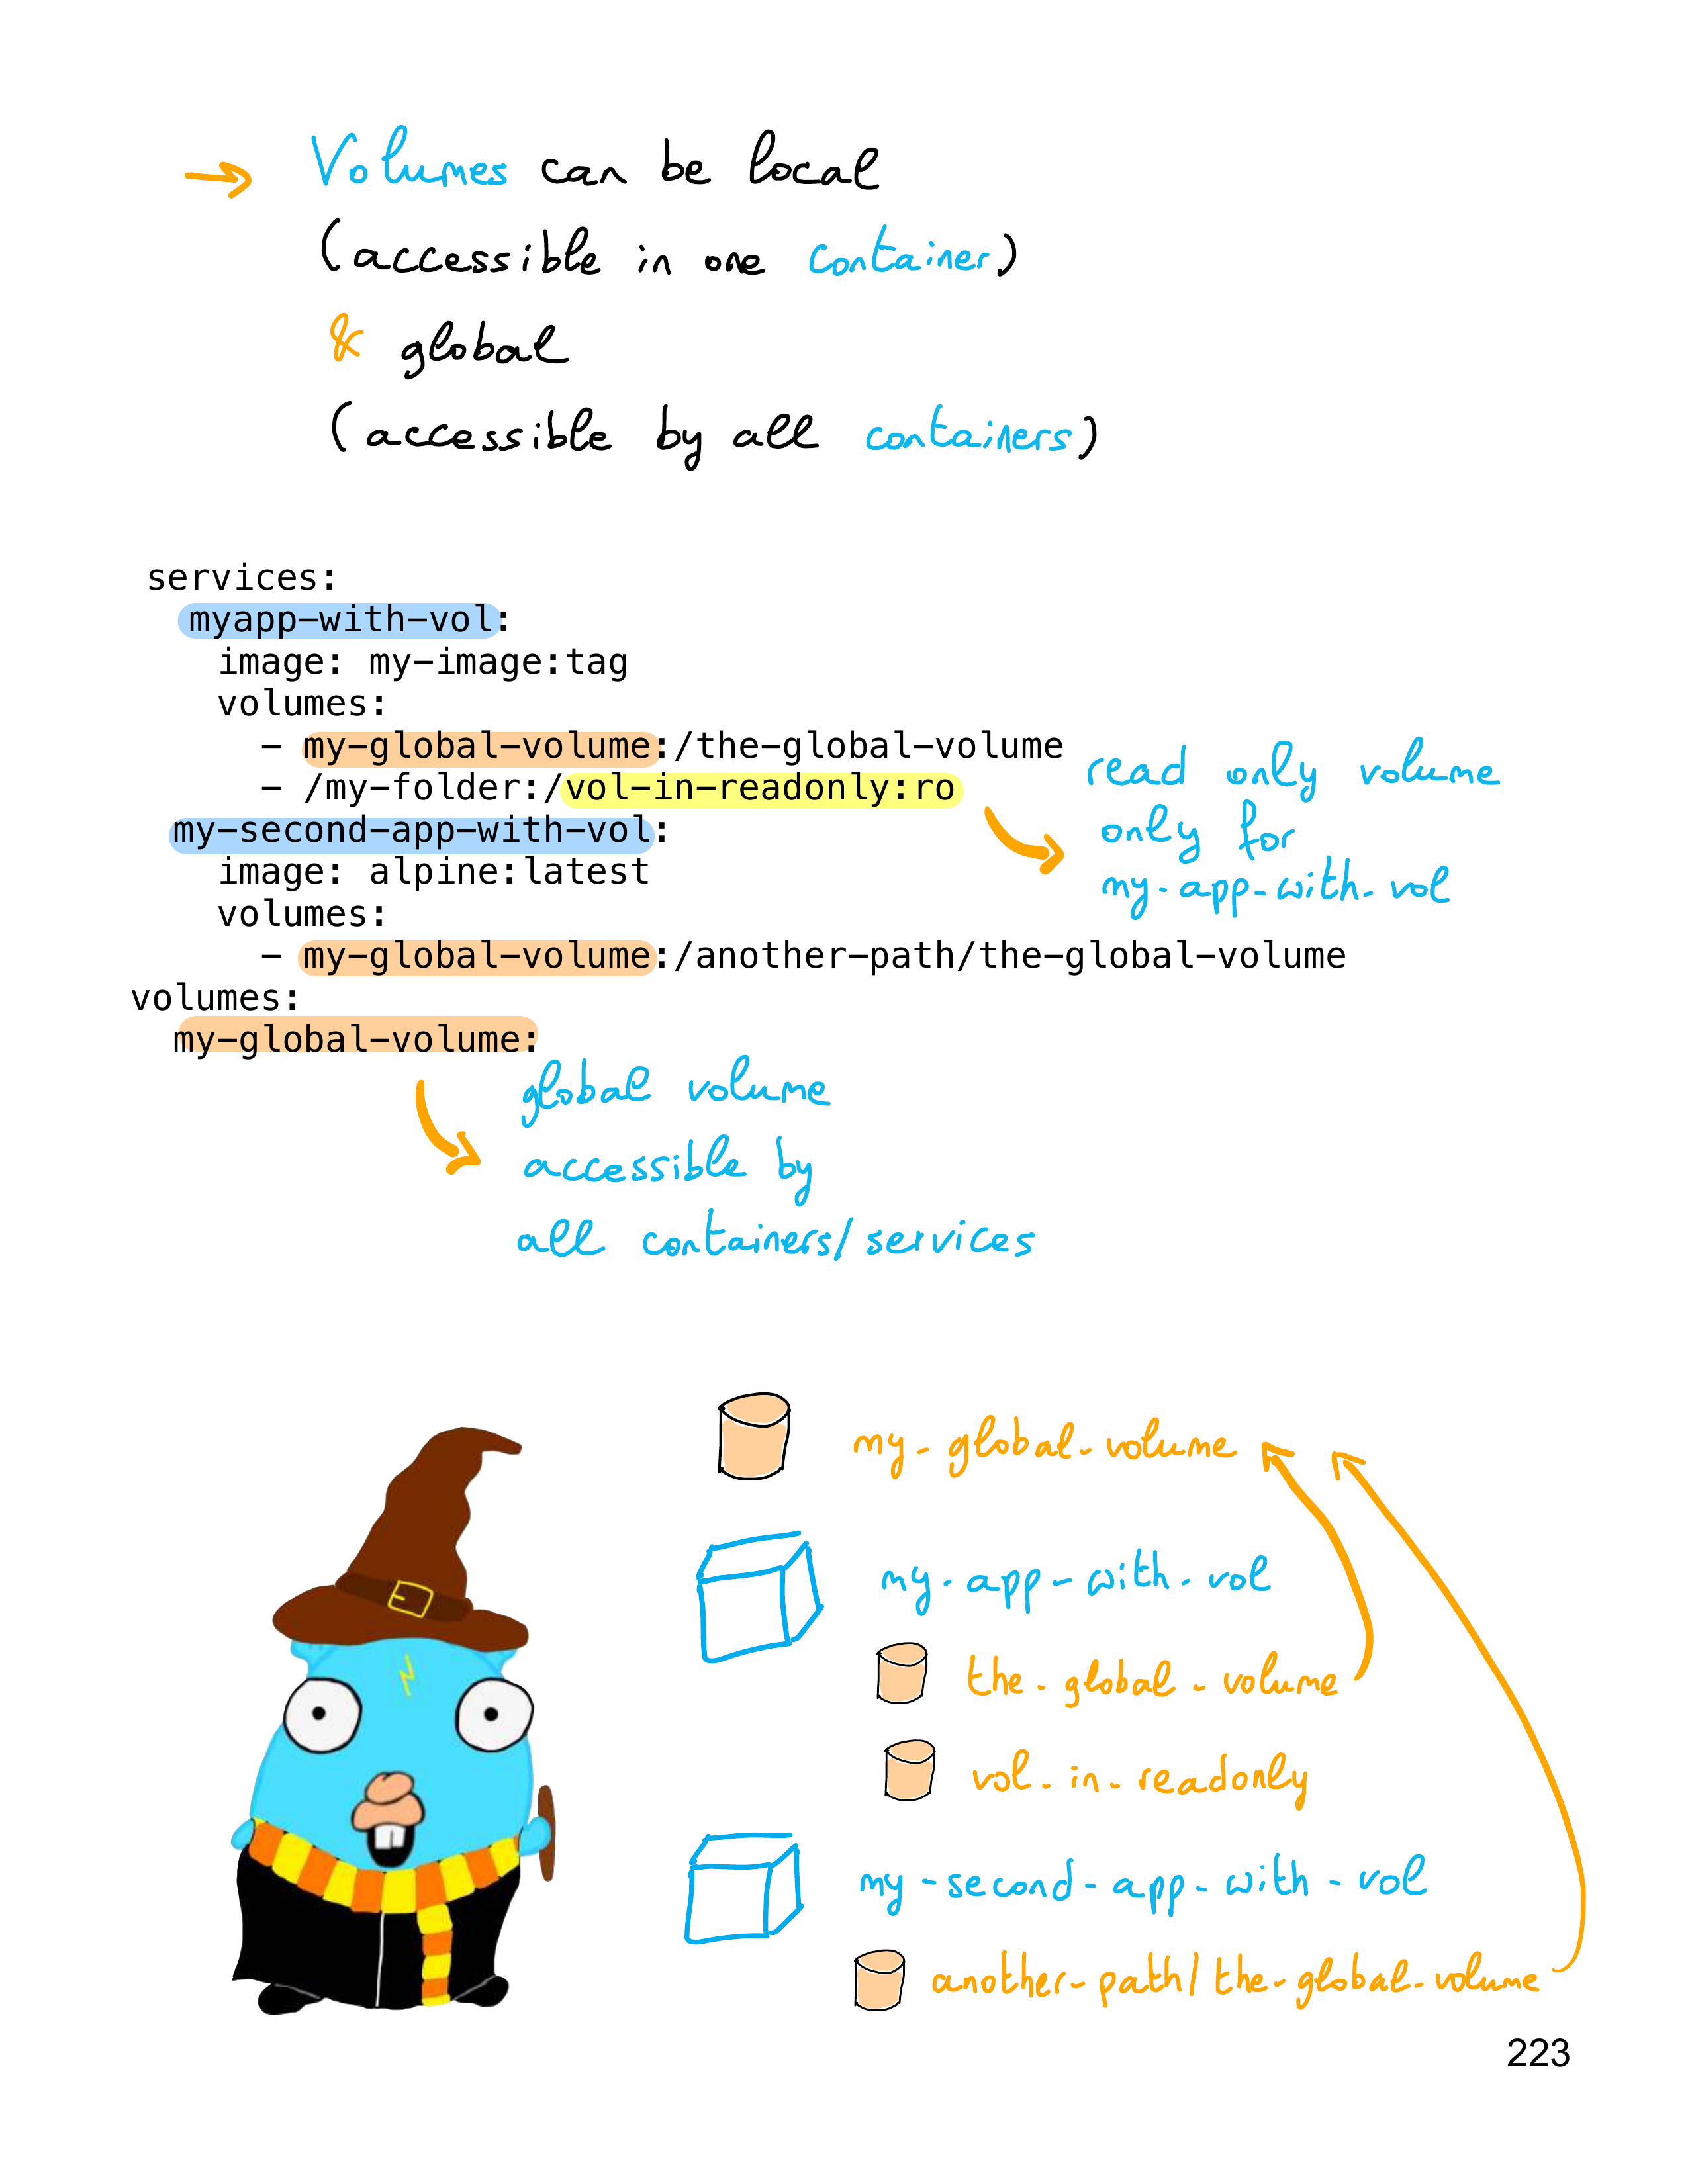 → Volumes can be local
(accessible in one container)
& global
(accessible by all containers)
services:
  myapp-with-vol:
    image: my-image:tag
    volumes:
      - my-global-volume:/the-global-volume
      - /my-folder:/vol-in-readonly:ro
  my-second-app-with-vol:
    image: alpine:latest
    volumes:
      - my-global-volume:/another-path/the-global-volume
volumes:
  my-global-volume:
read only volume
only for
my-app-with-vol
global volume
accessible by
all containers/services
my-global-volume
my-app-with-vol
the-global-volume
vol-in-readonly
my-second-app-with-vol
another-path/the-global-volume
223